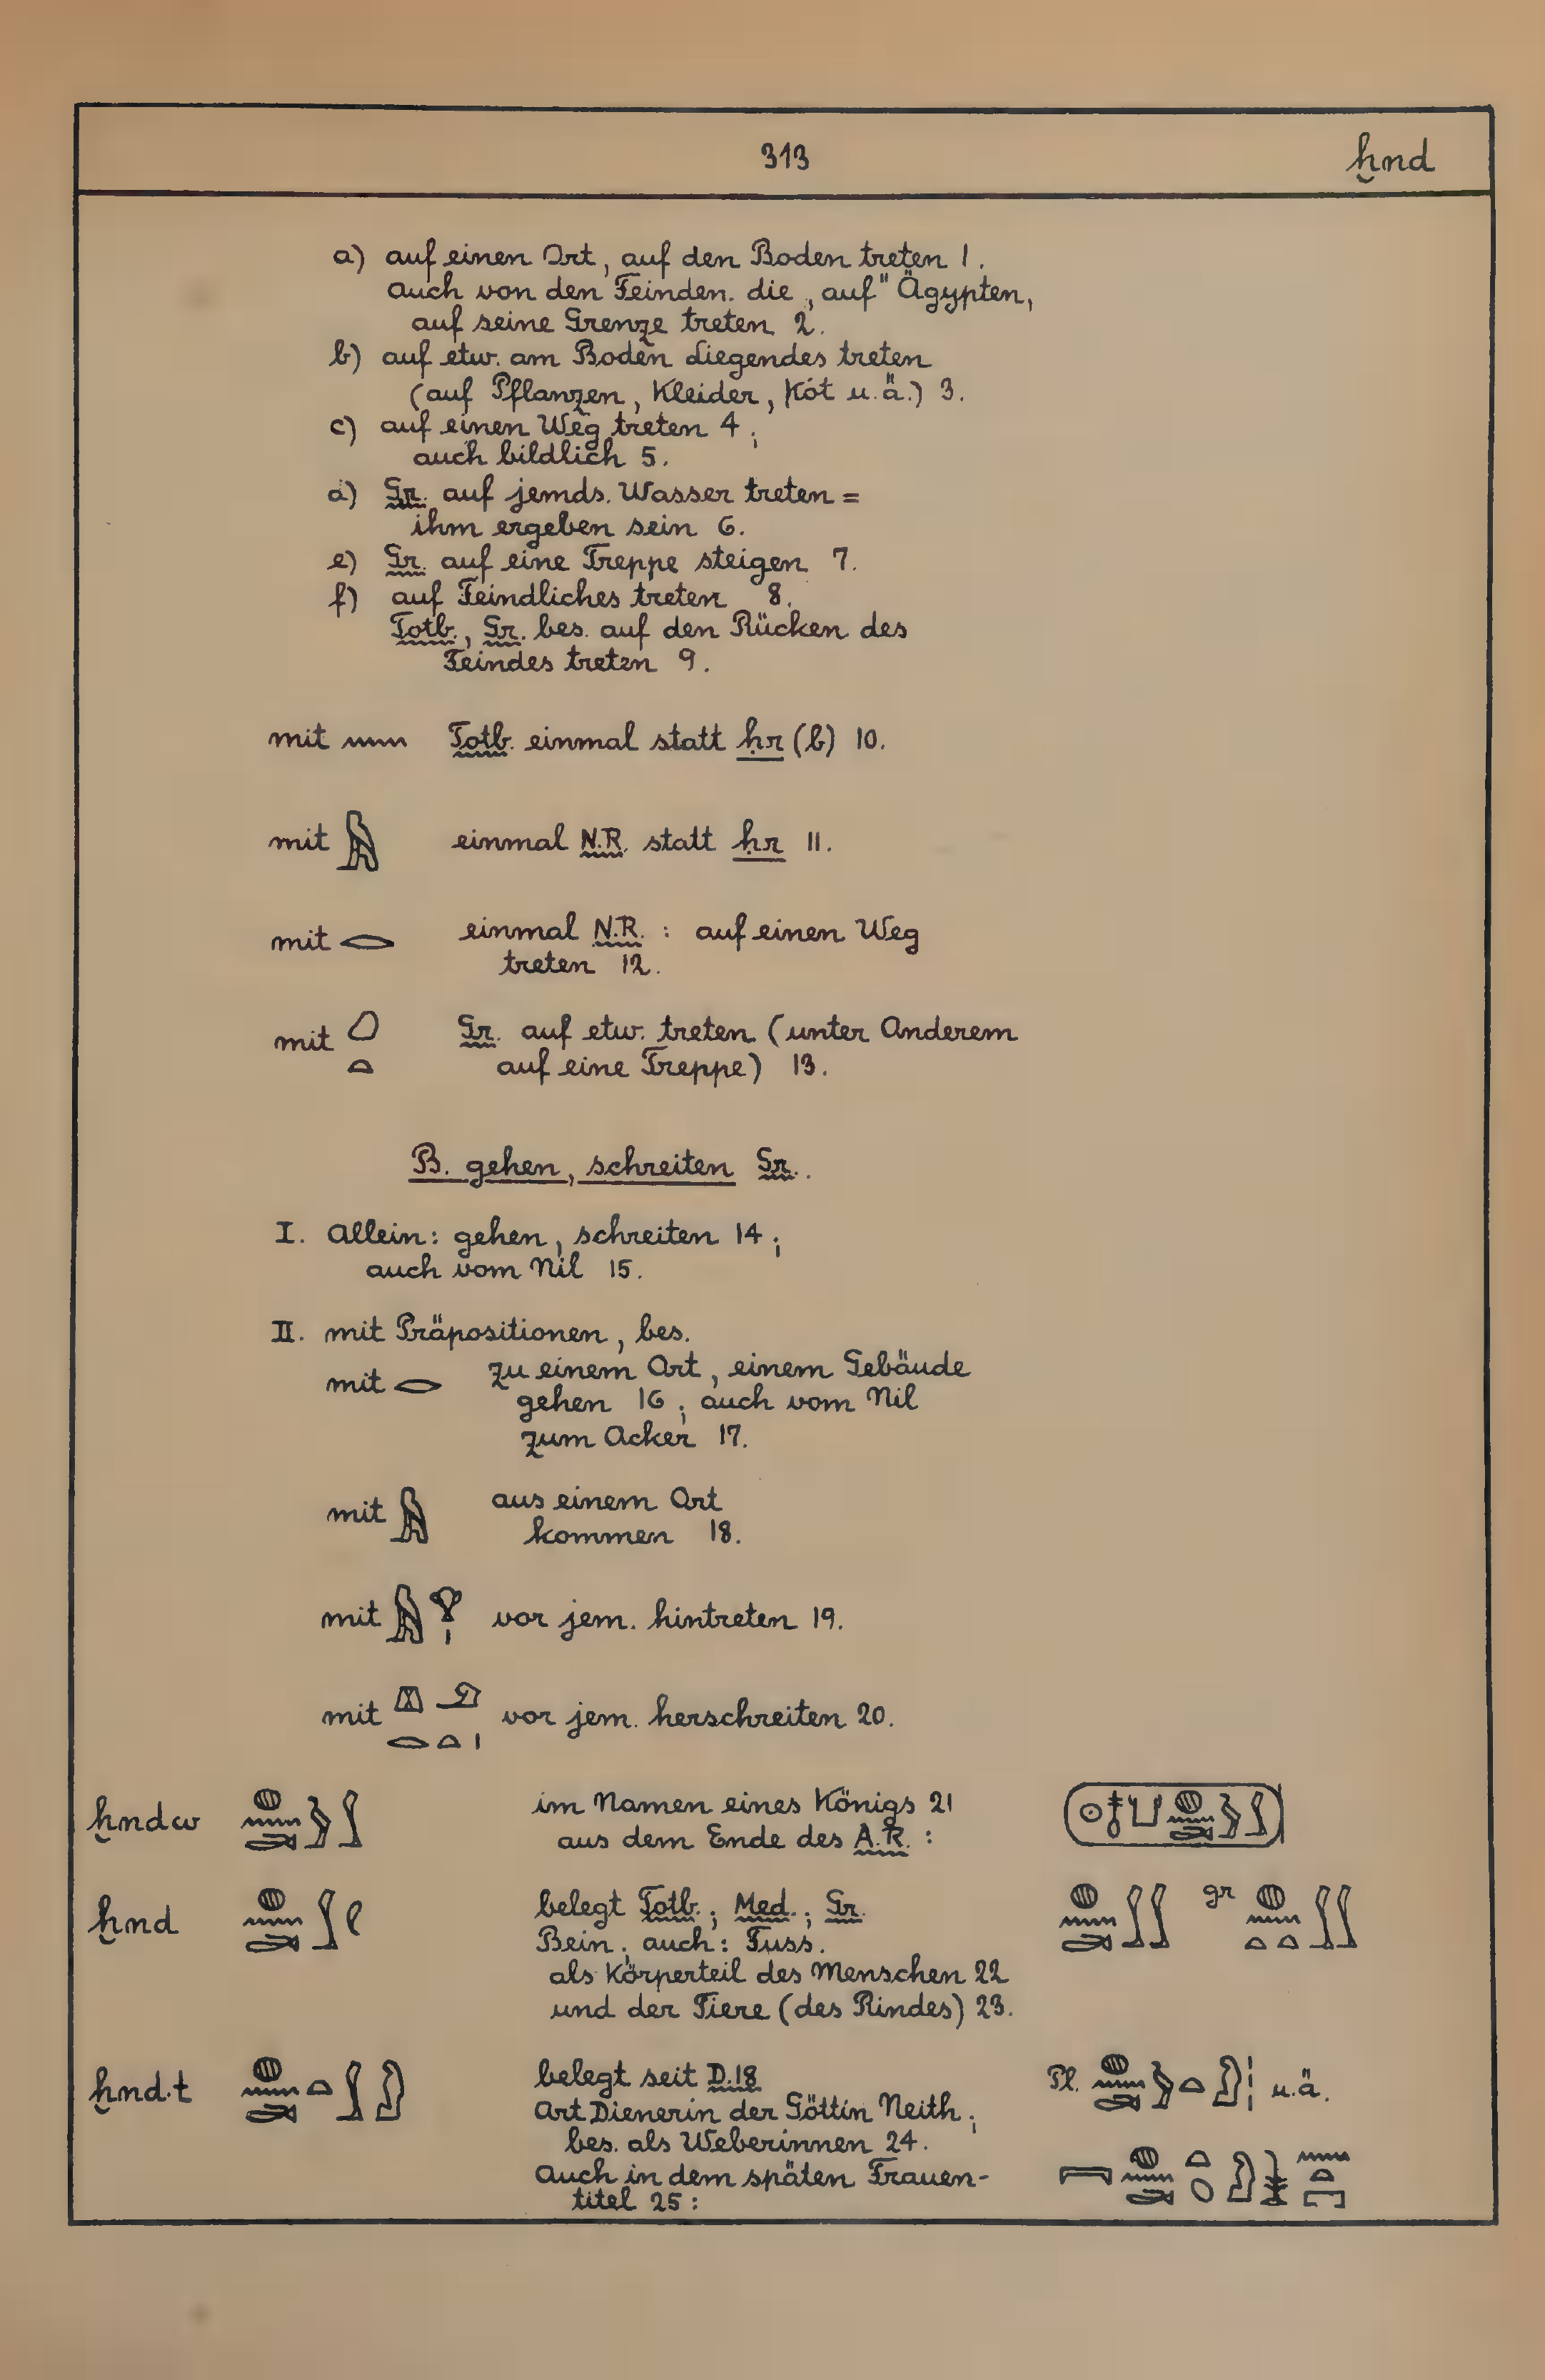 313 ḫnd
a) auf einen Ort, auf den Boden treten 1.
auch von den Feinden. die „auf" Ägypten,
auf seine Grenze treten 2.
b) auf etw. am Boden Liegendes treten
(auf Pflanzen, Kleider, Kot u.ä.) 3.
c) auf einen Weg treten 4;
auch bildlich 5.
d) Gr. auf jemds. Wasser treten =
ihm ergeben sein 6.
e) Gr. auf eine Treppe steigen 7.
f) auf Feindliches treten 8.
Totb., Gr. bes. auf den Rücken des
Feindes treten 9.
mit 𓈖 Totb. einmal statt ḥr (b) 10.
mit 𓅓 einmal N.R. statt ḥr 11.
mit 𓂋 einmal N.R. : auf einen Weg
treten 12.
mit Gr. auf etw. treten (unter Anderem
auf eine Treppe) 13.
B. gehen, schreiten Gr..
I. Allein: gehen, schreiten 14;
auch vom Nil 15.
II. mit Präpositionen, bes.
mit 𓂋 zu einem Ort, einem Gebäude
gehen 16; auch vom Nil
zum Acker 17.
mit 𓅓 aus einem Ort
kommen 18.
mit 𓅓𓁷𓏤 vor jem. hintreten 19.
mit vor jem. herschreiten 20.
ḫndw 𓐍𓈖𓆓 im Namen eines Königs 21
aus dem Ende des A.R. :
ḫnd belegt Totb.; Med.; Gr. gr
Bein; auch: Fuss.
als Körperteil des Menschen 22
und der Tiere (des Rindes) 23.
ḫnd.t belegt seit D.18 Pl. u.ä.
Art Dienerin der Göttin Neith;
bes. als Weberinnen 24.
Auch in dem späten Frauen-
titel 25: